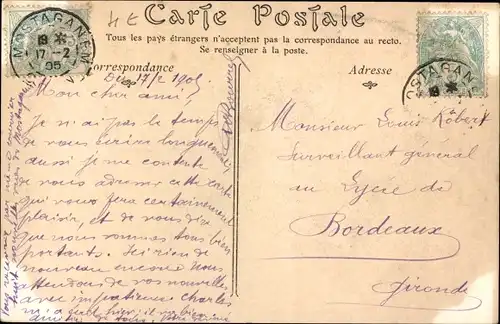 4E
Carte Postale
Tous les pays étrangers n'acceptent pas la correspondance au recto.
Se renseigner à la poste.
Correspondance
Adresse
MOSTAGANEM
19 *
17-2
05
MOSTAGANEM
19 *
17/2 1905
Mon cher ami,
Je n'ai pas le temps
de vous écrire longuement
aussi je me contente
de vous adresser cette carte
qui vous fera certainement
plaisir, et de vous dire
que nous sommes tous bien
portants. Ici rien de
nouveau encore. Nous
attendons de vos nouvelles
avec impatience Charles
Monsieur Louis Robert
Surveillant général
au Lycée de
Bordeaux
Gironde